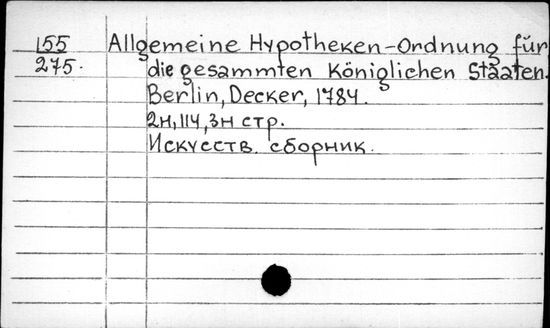 155 Allgemeine Hypotheken-Ordnung für
275. die gesammten Königlichen Staaten.
Berlin, Decker, 1784.
2н, 114, 3н стр.
Искусств. сборник.